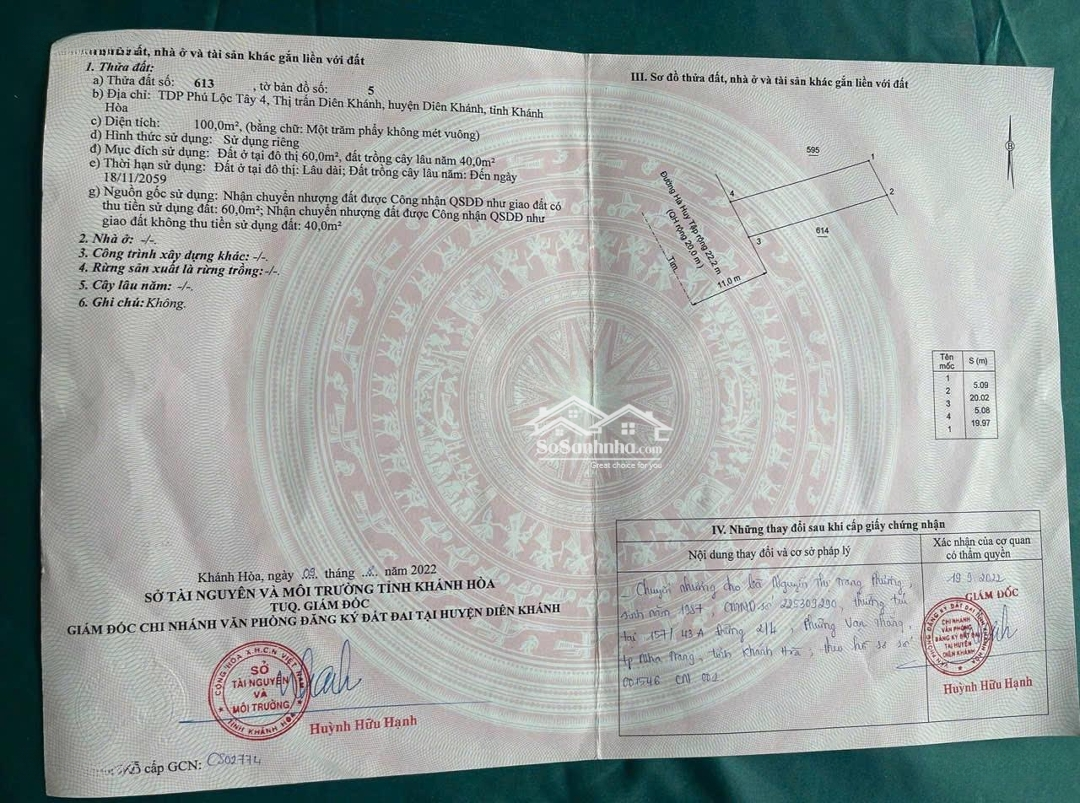 ất, nhà ở và tài sản khác gắn liền với đất
1. Thửa đất:
a) Thửa đất số: 613 , tờ bản đồ số: 5
b) Địa chỉ: TDP Phú Lộc Tây 4, Thị trấn Diên Khánh, huyện Diên Khánh, tỉnh Khánh
Hòa
c) Diện tích: 100,0m², (bằng chữ: Một trăm phẩy không mét vuông)
d) Hình thức sử dụng: Sử dụng riêng
đ) Mục đích sử dụng: Đất ở tại đô thị 60,0m², đất trồng cây lâu năm 40,0m²
e) Thời hạn sử dụng: Đất ở tại đô thị: Lâu dài; Đất trồng cây lâu năm: Đến ngày
18/11/2059
g) Nguồn gốc sử dụng: Nhận chuyển nhượng đất được Công nhận QSDĐ như giao đất có
thu tiền sử dụng đất: 60,0m²; Nhận chuyển nhượng đất được Công nhận QSDĐ như
giao đất không thu tiền sử dụng đất: 40,0m²
2. Nhà ở: -/-.
3. Công trình xây dựng khác: -/-.
4. Rừng sản xuất là rừng trồng:-/-.
5. Cây lâu năm: -/-.
6. Ghi chú: Không.
Khánh Hòa, ngày 09 tháng năm 2022
SỞ TÀI NGUYÊN VÀ MÔI TRƯỜNG TỈNH KHÁNH HÒA
TUQ. GIÁM ĐỐC
GIÁM ĐỐC CHI NHÁNH VĂN PHÒNG ĐĂNG KÝ ĐẤT ĐAI TẠI HUYỆN DIÊN KHÁNH
CỘNG HÒA X.H.C.N VIỆT NAM
SỞ
TÀI NGUYÊN
VÀ
MÔI TRƯỜNG
TỈNH KHÁNH HÒA
Huỳnh Hữu Hạnh
cấp GCN: CS02774
III. Sơ đồ thửa đất, nhà ở và tài sản khác gắn liền với đất
B
595
1
4
2
3
614
Đường Hà Huy Tập rộng 22,2 m
(QH rộng 20,0 m)
Tim
11,0 m
Tên mốc S (m)
1
5.09
2
20.02
3
5.08
4
19.97
1
SoSanhnha.com
Great choice for you
IV. Những thay đổi sau khi cấp giấy chứng nhận
Nội dung thay đổi và cơ sở pháp lý
Xác nhận của cơ quan
có thẩm quyền
- Chuyển nhượng cho bà Nguyễn Thị Trang Phương,
sinh năm 1987, CMND số 225309290, thường trú
tại 157/43A Đường 2/4, Phường Vạn Thắng,
Tp Nha Trang, tỉnh Khánh Hòa; theo hồ sơ số
001546 CN 002
19.9.2022
GIÁM ĐỐC
VĂN PHÒNG ĐĂNG KÝ ĐẤT ĐAI
CHI NHÁNH
VĂN PHÒNG
ĐĂNG KÝ ĐẤT ĐAI
TẠI HUYỆN
DIÊN KHÁNH
Huỳnh Hữu Hạnh